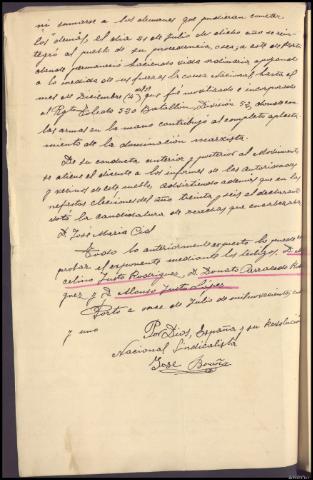 ni sumarse a los elementos que pudieran cometer
los demás, el día de Julio de dicho año se rein-
tegró al pueblo de su procedencia, o sea, a este de Porto
donde permaneció haciendo vida ordinaria apoyando
a la medida de sus fuerzas la causa Nacional, hasta el
mes de Diciembre que fué movilizado e incorporado
al Rgto Toledo Batallón, División 53, donde con
las armas en la mano contribuyó al completo aplasta-
miento de la dominación marxista.
De su conducta anterior y posterior al Movimiento
se atiene el dicente a los informes de las autoridades
y vecinos de este pueblo, advirtiendo además que en las
nefastas elecciones del año treinta y seis el declarante
votó la candidatura de derechas que encabezaba
D. José María Cid
Todo lo anteriormente expuesto lo puede
probar el exponente mediante los testigos, D.
Justo Rodríguez, D. Donato Rodrí-
guez y D. Alonso Justo López
Porto a once de Julio de mil novecientos cuarenta
y uno
Por Dios, España y su Revolución
Nacional Sindicalista
José